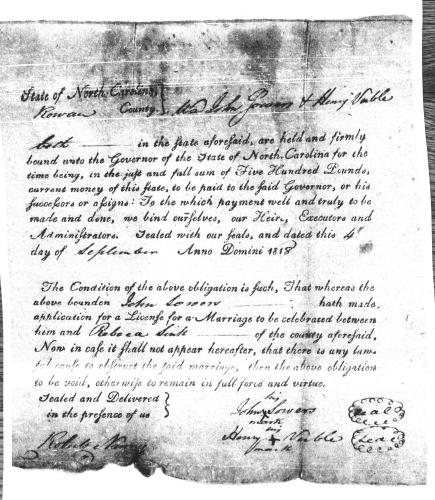 State of North-Carolina, }
Rowan County. } We John Sowers & Henry Varble
both in the state aforesaid, are held and firmly
bound unto the Governor of the State of North-Carolina for the
time being, in the just and full sum of Five Hundred Pounds,
current money of this state, to be paid to the said Governor, or his
successors or assigns: To the which payment well and truly to be
made and done, we bind ourselves, our Heirs, Executors and
Administrators. Sealed with our seals, and dated this 4th
day of September Anno Domini 1818
The Condition of the above obligation is such, That whereas the
above bounden John Sowers hath made
application for a License for a Marriage to be celebrated between
him and Sink of the county aforesaid,
Now in case it shall not appear hereafter, that there is any law-
ful cause to obstruct the said marriage, then the above obligation
to be void, otherwise to remain in full force and virtue.
Sealed and Delivered }
in the presence of us }
his
John Sowers (seal)
mark
his
Henry + Varble (seal)
mark